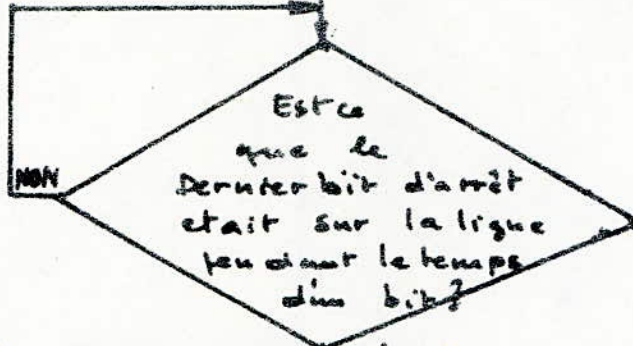 Est ce
que le
Dernier bit d'arrêt
NON
etait sur la ligne
pendant le temps
d'un bit?